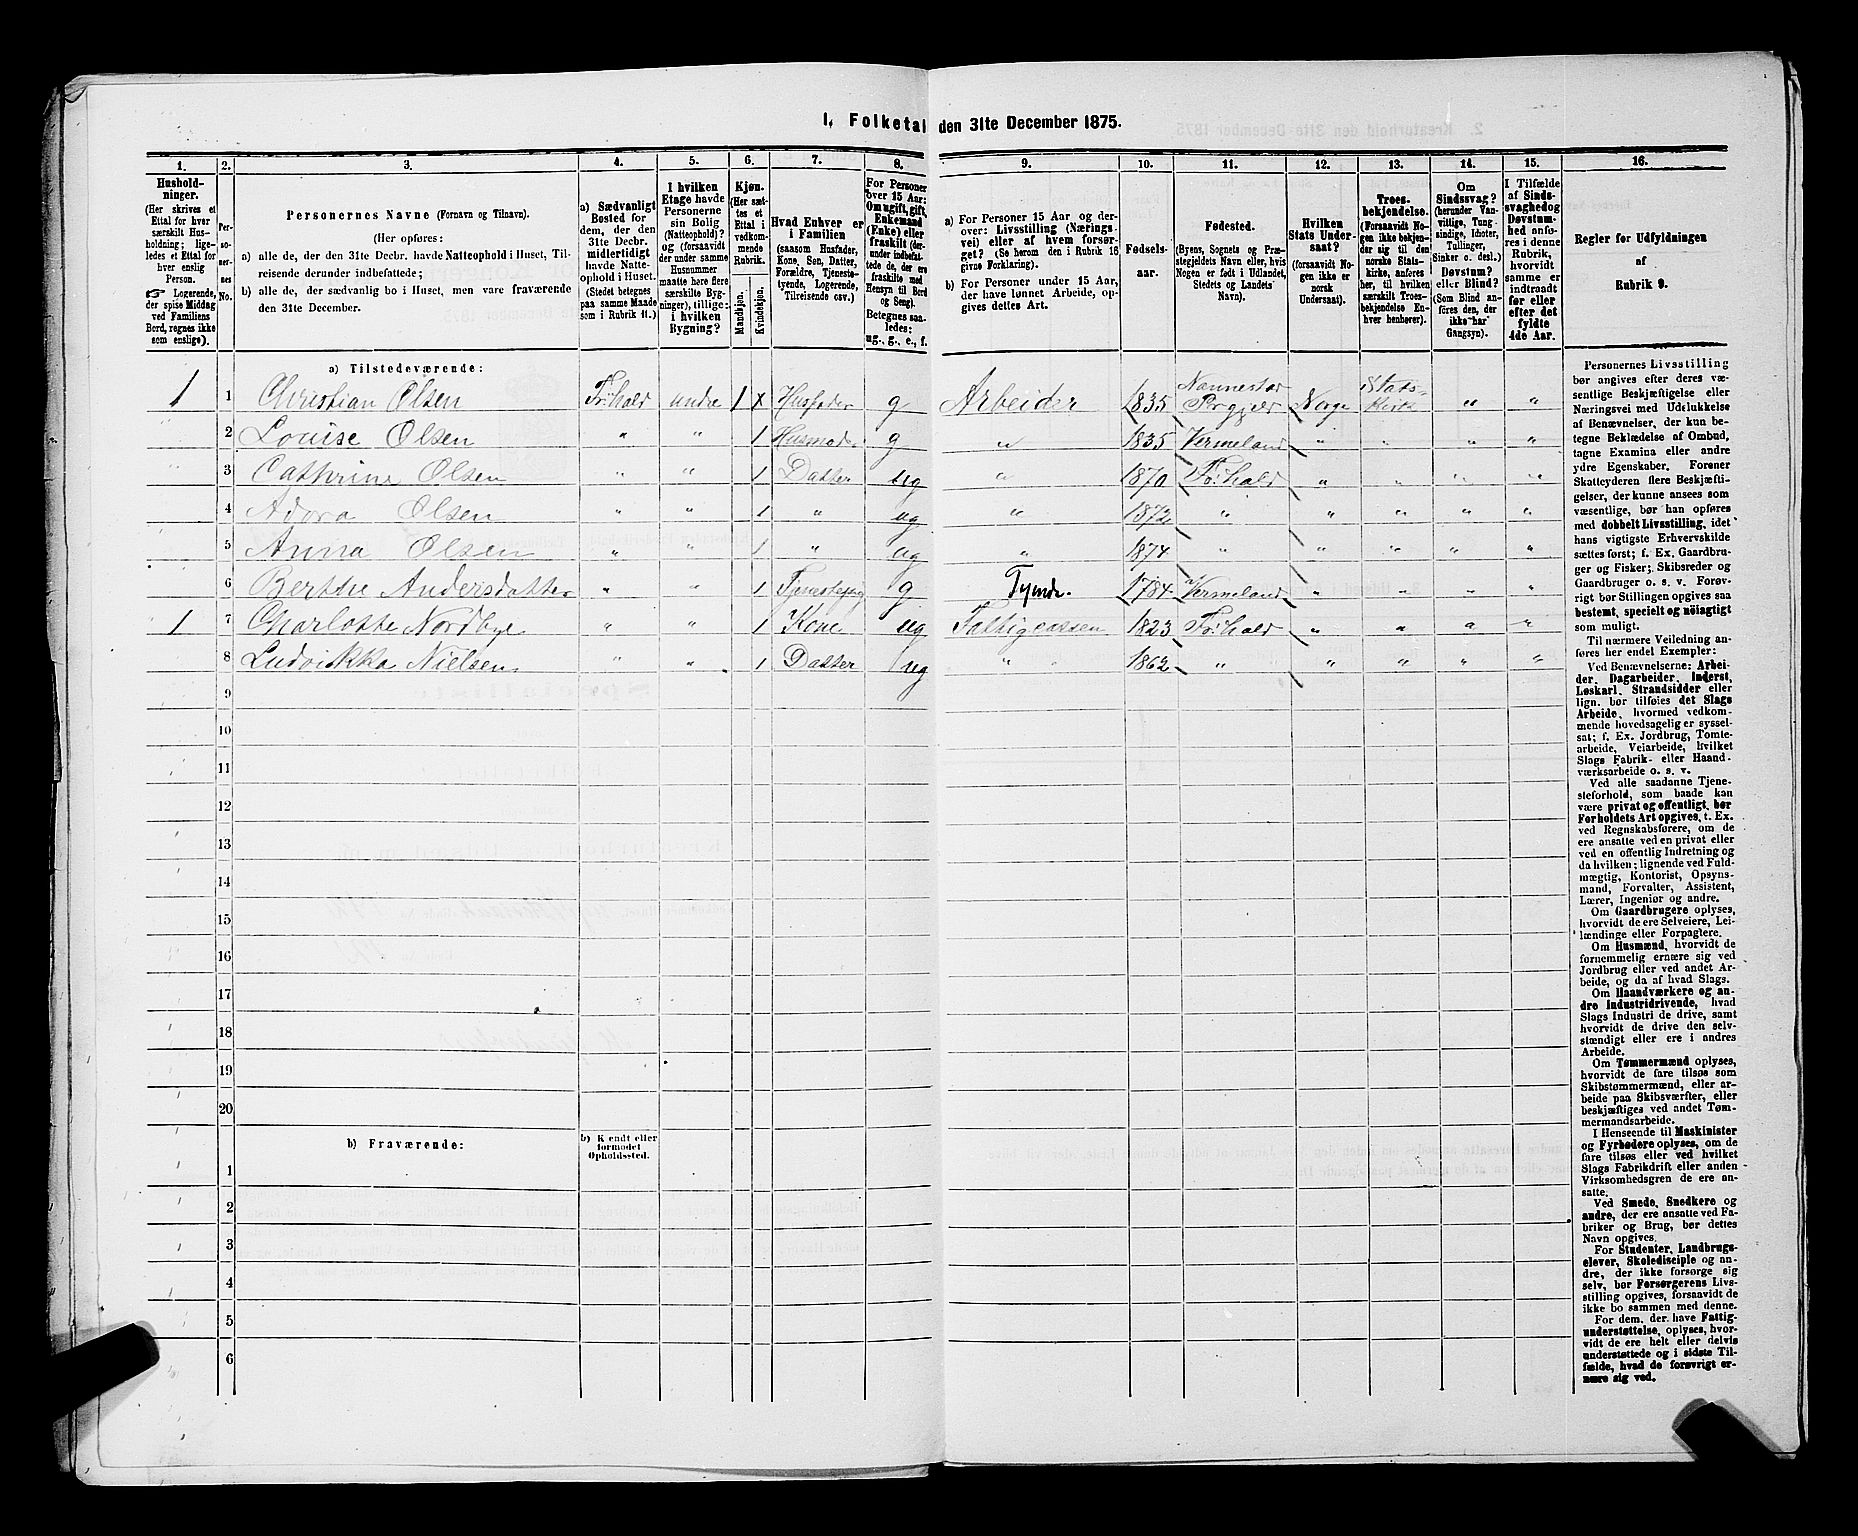 1. Folketal den 31te December 1875.
1. 2. 3. 4. 5. 6. 7. 8. 9. 10. 11. 12. 13. 14. 15. 16.
Hushold-
ninger.
(Her skrives et
Ettal for hver
særskilt Hus-
holdning; lige-
ledes et Ettal for
hver enslig
Person.
☞ Logerende,
der spise Middag
ved Familiens
Bord, regnes ikke
som enslige).
Per-
so-
ner-
nes
No.
Personernes Navne (Fornavn og Tilnavn).
(Her opføres:
a) alle de, der den 31te Decbr. havde Natteophold i Huset, Til-
reisende derunder indbefattede;
b) alle de, der sædvanlig bo i Huset, men vare fraværende
den 31te December.
a) Sædvanligt
Bosted for
dem, der den
31te Decbr.
midlertidigt
havde Natte-
ophold i Huset.
(Stedet betegnes
paa samme Maade
som i Rubrik 11.)
I hvilken
Etage havde
Personerne
sin Bolig
(Natteophold)?
og (forsaavidt
der under samme
Husnummer
maatte høre flere
særskilte Byg-
ninger), tillige:
i hvilken
Bygning?
Kjøn.
(Her sæt-
tes et
Ettal i
vedkom-
mende
Rubrik.
Mandkjøn.
Kvindekjøn.
Hvad Enhver er
i Familien
(saasom Husfader,
Kone, Søn, Datter,
Forældre, Tjeneste-
tyende, Logerende,
Tilreisende osv.)
For Personer
over 15 Aar:
Om ugift, gift,
Enkemand
(Enke) eller
fraskilt (der-
under indbefat-
tede de, der ere
fraskilte med
Hensyn til Bord
og Seng).
Betegnes saa-
ledes:
ug., g., e., f.
a) For Personer 15 Aar og der-
over: Livsstilling (Nærings-
vei) eller af hvem forsør-
get? (Se herom den i Rubrik 16
givne Forklaring).
b) For Personer under 15 Aar,
der have lønnet Arbeide, op-
gives dettes Art.
Fødsels-
aar.
Fødested.
(Byens, Sognets og Præ-
stegjeldets Navn eller, hvis
Nogen er født i Udlandet,
Stedets og Landets
Navn).
Hvilken
Stats Under-
saat?
(forsaavidt No-
gen ikke er
norsk
Undersaat).
Troes-
bekjendelse.
(Forsaavidt No-
gen ikke bekjen-
der sig til den
norske Stats-
kirke, anføres
her, til hvilken
særskilt Troes-
bekjendelse En-
hver henhører).
Om
Sindssvag?
(herunder Van-
vittige, Tung-
sindige, Idioter,
Tullinger,
Sinker o. desl.)
Døvstum?
eller Blind?
(Som Blind an-
føres den, der
ikke har
Gangsyn).
I Tilfælde
af Sinds-
svaghed og
Døvstum-
hed anfø-
res i denne
Rubrik,
hvorvidt
samme er
indtraadt
før eller
efter det
fyldte
4de Aar.
Regler for Udfyldningen
af
Rubrik 9.
a) Tilstedeværende:
1 1 Christian Olsen Fr:hald andre 1 x Husfader g Arbeider 1835 Nannestad Prgjeld Norge Statskirke " "
2 Louise Olsen " " 1 Husmod. g " 1835 Vermeland " " " "
3 Cathrine Olsen " " 1 Datter ug " 1870 Fr:hald " " " "
4 Adora Olsen " " 1 " ug " 1872 " " " " "
5 Anna Olsen " " 1 " ug " 1874 " " " " "
6 Berthe Andersdatter " " 1 g Tyende. 1784 Vermeland " " " "
1 7 Charlotte Nordbye " " 1 Kone ug Fattigcassen 1823 Fr:hald " " " "
8 Ludvikka Nielsen " " 1 Datter ug " " 1862 " " " " "
9
10
11
12
13
14
15
16
17
18
19
20
b) Fraværende:
b) Kjendt eller
formodet
Opholdssted.
1
2
3
4
5
6
Personernes Livsstilling
bør angives efter deres væ-
sentlige Beskjæftigelse eller
Næringsvei med Udelukkelse
af Benævnelser, der kun be-
tegne Beklædelse af Ombud,
tagne Examina eller andre
ydre Egenskaber. Forener
Skatteyderen flere Beskjæfti-
gelser, der kunne ansees som
væsentlige, bør han opføres
med dobbelt Livsstilling, idet
hans vigtigste Erhvervskilde
sættes først; f. Ex. Gaardbru-
ger og Fisker; Skibsreder og
Gaardbruger o. s. v. Forøv-
rigt bør Stillingen opgives saa
bestemt, specielt og nöiagtigt
som muligt.
Til nærmere Veiledning an-
føres her endel Exempler:
Ved Benævnelserne: Arbei-
der, Dagarbeider, Inderst,
Løskarl, Strandsidder eller
lign. bør tilføies det Slags
Arbeide, hvormed vedkom-
mende hovedsagelig er syssel-
sat; f. Ex. Jordbrug, Tomte-
arbeide, Veiarbeide, hvilket
Slags Fabrik- eller Haand-
værksarbeide o. s. v.
Ved alle saadanne Tjene-
steforhold, som baade kan
være privat og offentligt, bør
Forholdets Art opgives, f. Ex.
ved Regnskabsførere, om de
ere ansatte ved en privat eller
ved en offentlig Indretning og
da hvilken; lignende ved Fuld-
mægtig, Kontorist, Opsyns-
mand, Forvalter, Assistent,
Lærer, Ingeniør og andre.
Om Gaardbrugere oplyses,
hvorvidt de ere Selveiere, Lei-
lændinge eller Forpagtere.
Om Husmænd, hvorvidt de
fornemmelig ernære sig ved
Jordbrug eller ved andet Ar-
beide, og da af hvad Slags.
Om Haandværkere og an-
dre Industridrivende, hvad
Slags Industri de drive, samt
hvorvidt de drive den selv-
stændigt eller ere i andres
Arbeide.
Om Tømmermænd oplyses,
hvorvidt de fare tilsøs som
Skibstømmermænd, eller ar-
beide paa Skibsværfter, eller
beskjæftiges ved andet Tøm-
mermandsarbeide.
I Henseende til Maskinister
og Fyrbødere oplyses, om de
fare tilsøs eller ved hvilket
Slags Fabrikdrift eller anden
Virksomhedsgren de ere an-
satte.
Ved Smede, Snedkere og
andre, der ere ansatte ved Fa-
briker og Brug, bør dettes
Navn opgives.
For Studenter, Landbrugs-
elever, Skoledisciple og an-
dre, der ikke forsørge sig
selv, bør Forsørgerens Livs-
stilling opgives, forsaavidt de
ikke bo sammen med denne.
For dem, der have Fattig-
understøttelse, oplyses, hvor-
vidt de ere helt eller delvis
understøttede og i sidste Til-
fælde, hvad de forøvrigt er-
nære sig ved.